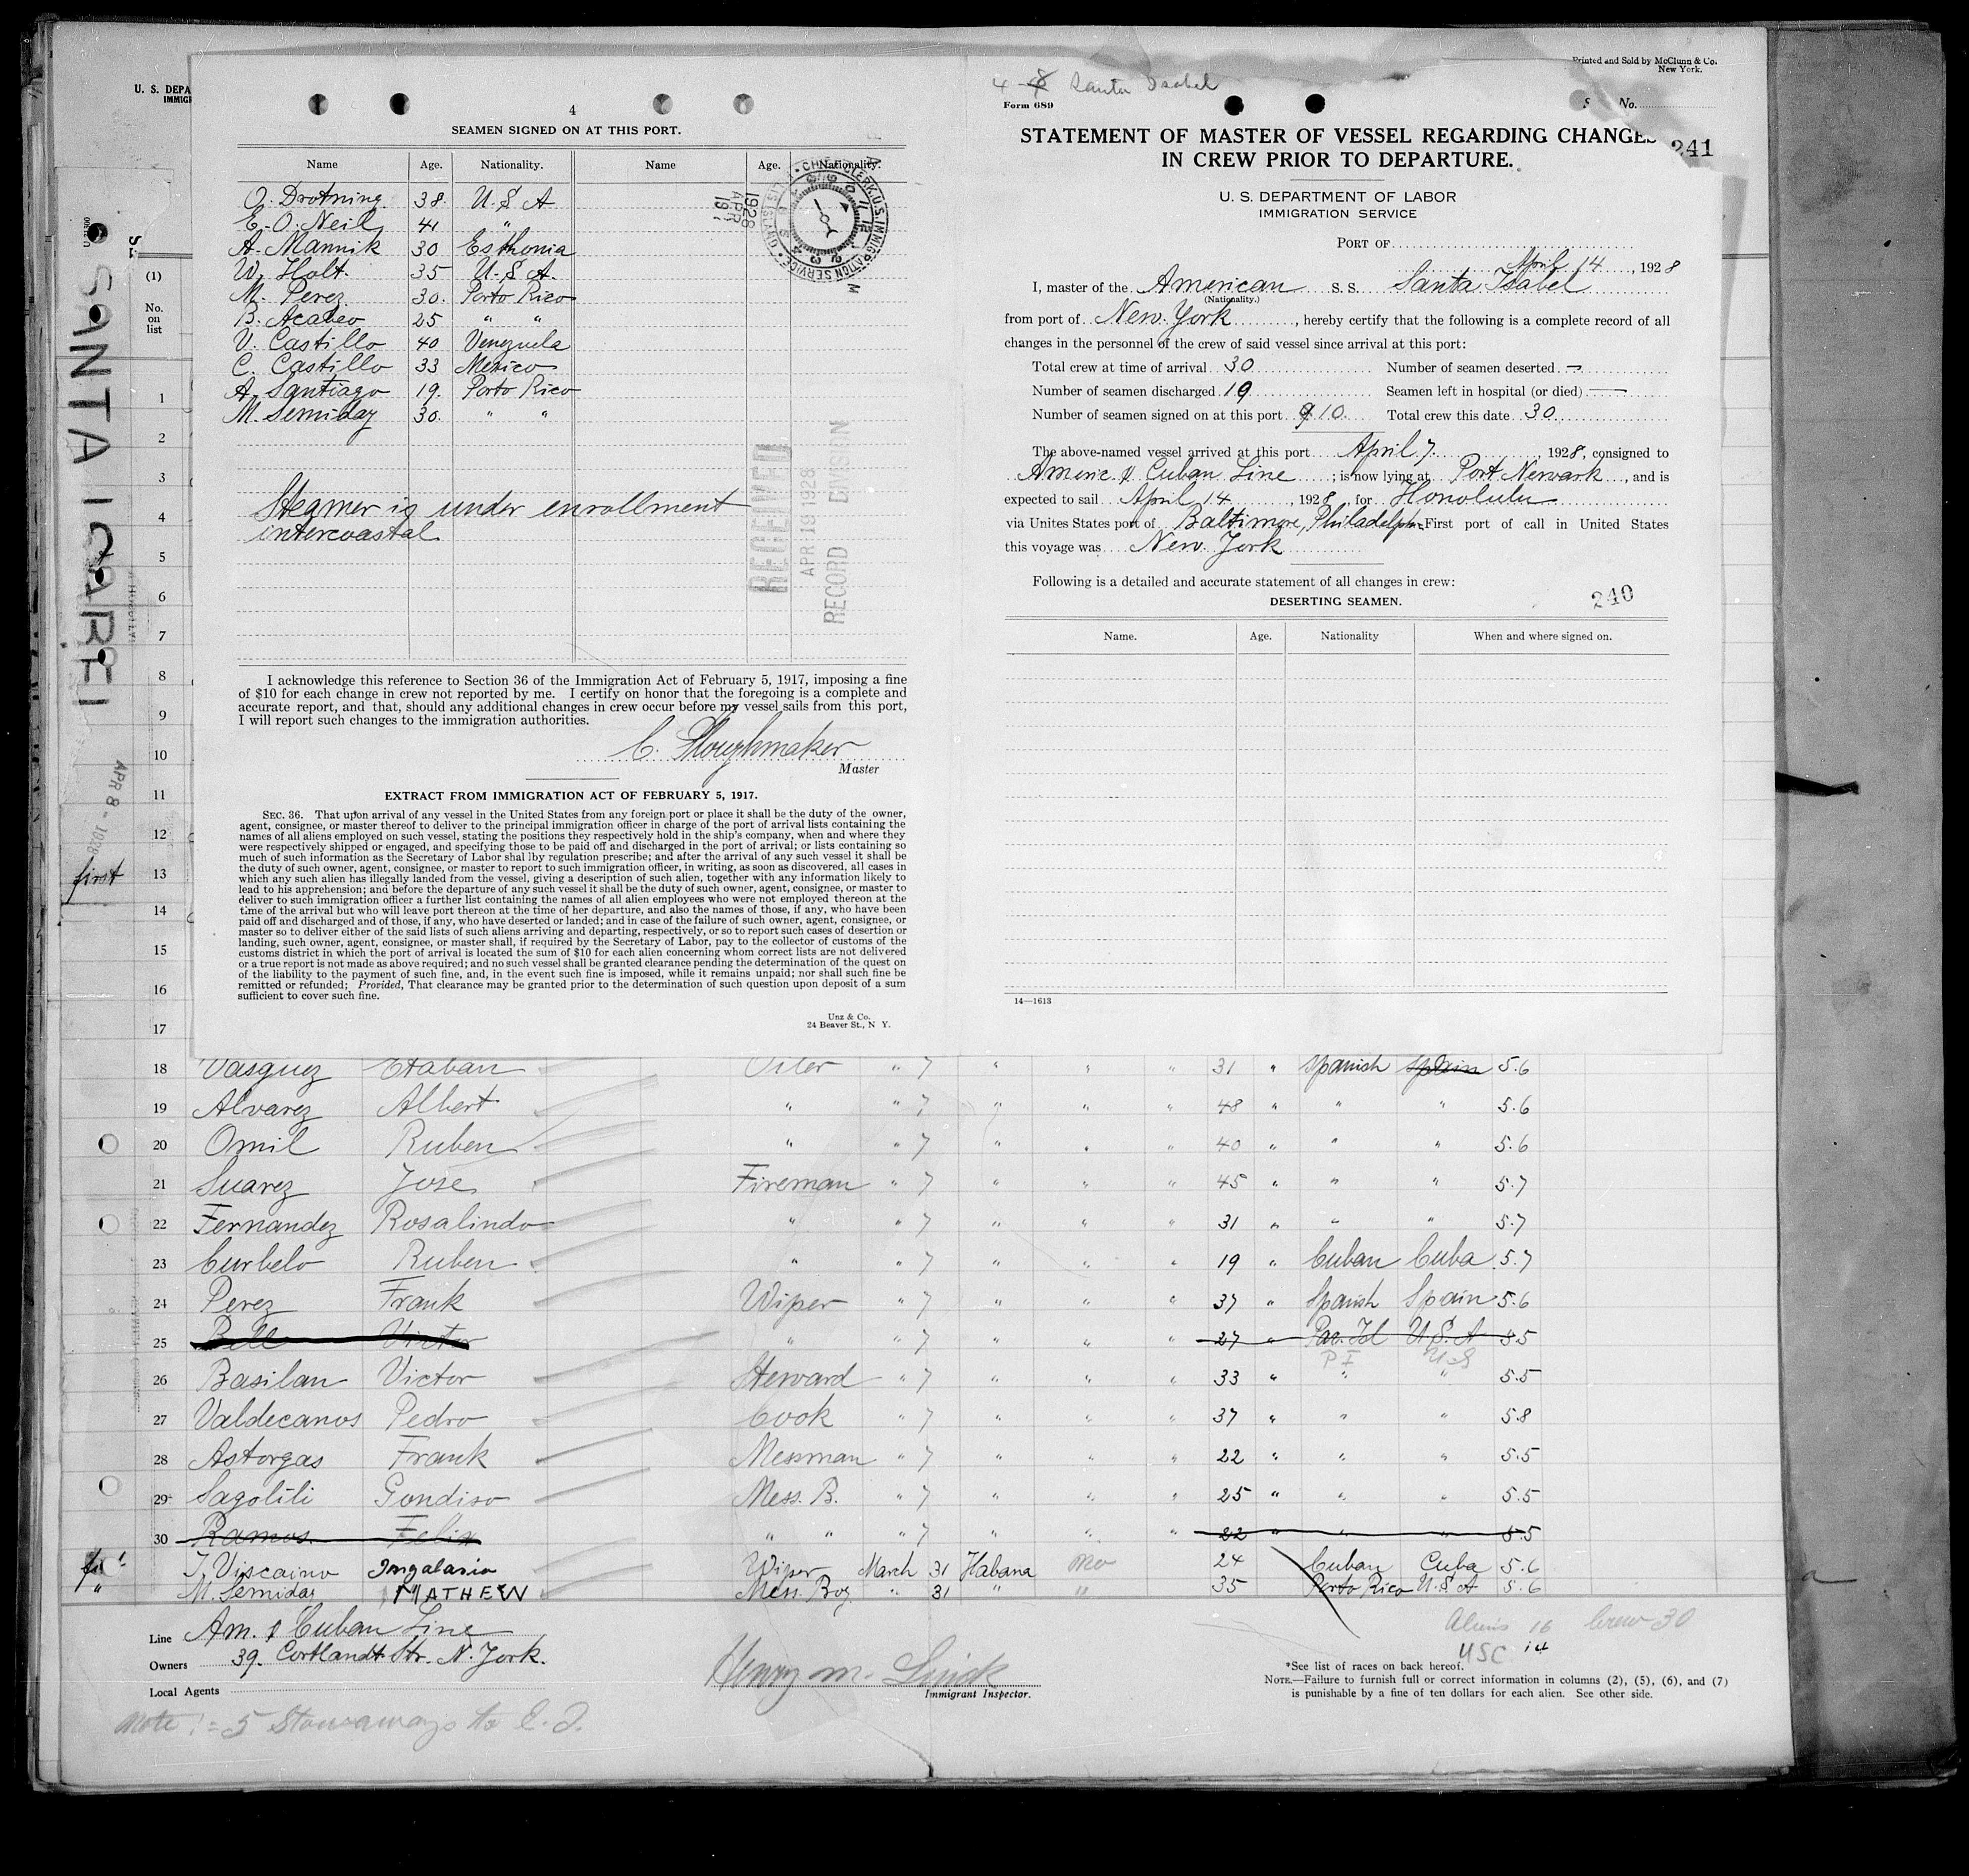 U. S. DEPA
IMMIGR
SANTA ISABEL
(1)
No.
on
list
APR 8 - 1928
first
4
SEAMEN SIGNED ON AT THIS PORT.
Name Age. Nationality. Name Age. Nationality.
O. Drotning 38 U.S.A
E. O. Neil 41 "
A. Mannik 30 Esthonia
W. Holt. 35 U.S.A.
M. Perez 30. Porto Rico
B. Acabeo 25 " "
V. Castillo 40 Venezuela
C. Castillo 33 Mexico
A. Santiago 19. Porto Rico
M. Semiday 30. " "
Steamer is under enrollment
intercoastal
1928 APR 19
RECEIVED
APR 19 1928
RECORD DIVISION
I acknowledge this reference to Section 36 of the Immigration Act of February 5, 1917, imposing a fine
of $10 for each change in crew not reported by me. I certify on honor that the foregoing is a complete and
accurate report, and that, should any additional changes in crew occur before my vessel sails from this port,
I will report such changes to the immigration authorities.
C. Ploughmaker
Master
EXTRACT FROM IMMIGRATION ACT OF FEBRUARY 5, 1917.
SEC. 36. That upon arrival of any vessel in the United States from any foreign port or place it shall be the duty of the owner,
agent, consignee, or master thereof to deliver to the principal immigration officer in charge of the port of arrival lists containing the
names of all aliens employed on such vessel, stating the positions they respectively hold in the ship's company, when and where they
were respectively shipped or engaged, and specifying those to be paid off and discharged in the port of arrival; or lists containing so
much of such information as the Secretary of Labor shal lby regulation prescribe; and after the arrival of any such vessel it shall be
the duty of such owner, agent, consignee, or master to report to such immigration officer, in writing, as soon as discovered, all cases in
which any such alien has illegally landed from the vessel, giving a description of such alien, together with any information likely to
lead to his apprehension; and before the departure of any such vessel it shall be the duty of such owner, agent, consignee, or master to
deliver to such immigration officer a further list containing the names of all alien employees who were not employed thereon at the
time of the arrival but who will leave port thereon at the time of her departure, and also the names of those, if any, who have been
paid off and discharged and of those, if any, who have deserted or landed; and in case of the failure of such owner, agent, consignee, or
master so to deliver either of the said lists of such aliens arriving and departing, respectively, or so to report such cases of desertion or
landing, such owner, agent, consignee, or master shall, if required by the Secretary of Labor, pay to the collector of customs of the
customs district in which the port of arrival is located the sum of $10 for each alien concerning whom correct lists are not delivered
or a true report is not made as above required; and no such vessel shall be granted clearance pending the determination of the quest on
of the liability to the payment of such fine, and, in the event such fine is imposed, while it remains unpaid; nor shall such fine be
remitted or refunded; Provided, That clearance may be granted prior to the determination of such question upon deposit of a sum
sufficient to cover such fine.
Unz & Co.
24 Beaver St., N Y.
4-8 Santa Isabel
Printed and Sold by McClunn & Co.
New York.
Form 689
No.
STATEMENT OF MASTER OF VESSEL REGARDING CHANGES
IN CREW PRIOR TO DEPARTURE.
241
U. S. DEPARTMENT OF LABOR
IMMIGRATION SERVICE
PORT OF
April 14, 1928
I, master of the American S. S. Santa Isabel
(Nationality.)
from port of New York, hereby certify that the following is a complete record of all
changes in the personnel of the crew of said vessel since arrival at this port:
Total crew at time of arrival 30 Number of seamen deserted —
Number of seamen discharged 10 Seamen left in hospital (or died) —
Number of seamen signed on at this port 9 10. Total crew this date 30
The above-named vessel arrived at this port April 7, 1928, consigned to
Americ & Cuban Line; is now lying at Port Newark, and is
expected to sail April 14, 1928, for Honolulu
via Unites States port of Baltimore, Philadelphia First port of call in United States
this voyage was New York
Following is a detailed and accurate statement of all changes in crew:
DESERTING SEAMEN.
240
Name. Age. Nationality When and where signed on.
14—1613
1
2
3
4
5
6
7
8
9
10
11
12
13
14
15
16
17
18 Vasquez Etaban Oiler " 7 " " " 31 " Spanish Spain 5.6
19 Alvarez Albert " " 7 " " " 48 " " " 5.6
20 Omil Ruben " " 7 " " " 40 " " " 5.6
21 Suarez Jose Fireman " 7 " " " 45 " " " 5.7
22 Fernandez Rosalindo " " 7 " " " 31 " " " 5.7
23 Curbelo Ruben " " 7 " " " 19 " Cuban Cuba 5.7
24 Perez Frank Wiper " 7 " " " 37 " Spanish Spain 5.6
25 Bell Victor " " 7 " " " 27 " U.S.A 5.5
P I U S
26 Basilan Victor Steward " 7 " " " 33 " " " 5.5
27 Valdecanos Pedro Cook " 7 " " " 37 " " " 5.8
28 Astorgas Frank Messman " 7 " " " 22 " " " 5.5
29 Sagolili Gondiso Mess. B. " 7 " " " 25 " " " 5.5
30 Ramos Felix " " " 7 " " " 22 " " " 5.5
J. Viscaino Wiper March 31 Habana no 24 Cuban Cuba 5.6
" M. Semiday MATHEW Mess Boy " 31 " " 35 Porto Rico U.S.A 5.6
Line Am. & Cuban Line
Owners 39. Cortlandt Str. N. York.
Local Agents
Henry M. Linck
Immigrant Inspector.
Aliens 16 Crew 30
USC 14
*See list of races on back hereof.
NOTE.—Failure to furnish full or correct information in columns (2), (5), (6), and (7)
is punishable by a fine of ten dollars for each alien. See other side.
Note:- 5 Stowaways to E. I.